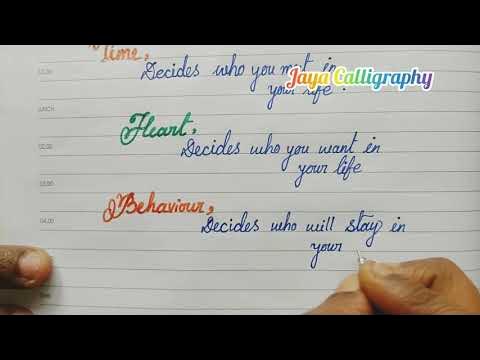 Time,
Decides who you met in
your life.
Jaya Calligraphy
12.00
LUNCH
Heart,
02.00
Decides who you want in
your life
03.00
Behaviour,
04.00
Decides who will stay in
your